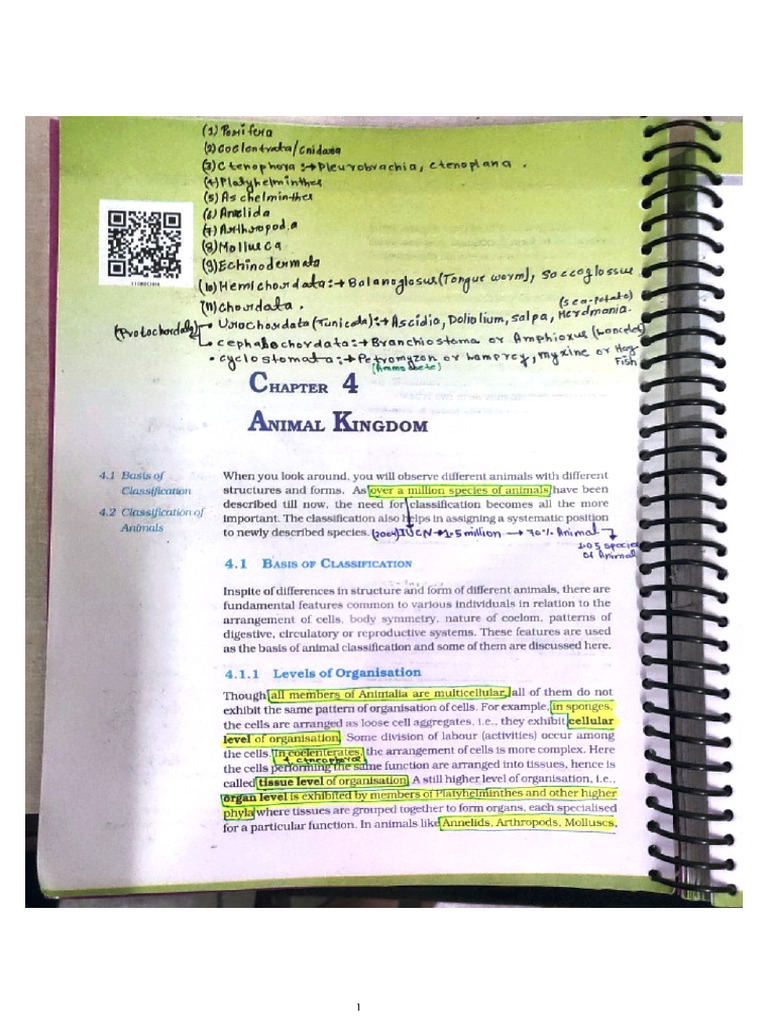 (1) Porifera
(2) Coelentrata/Cnidaria
(3) Ctenophora :→ Pleurobrachia, Ctenoplana .
(4) Platyhelminthes
(5) Aschelminthes
(6) Annelida
(7) Arthropoda
(8) Mollusca
(9) Echinodermata
(10) Hemichordata :→ Balanoglosus (Tongue worm), Saccoglossus
(11) Chordata .
(sea-potato)
(Protochordata) • Urochordata (Tunicata) :→ Ascidia, Doliolium, Salpa, Herdmania.
• cephalochordata :→ Branchiostoma or Amphioxus (Lancelet)
• cyclostomata :→ Petromyzon or Lamprey, myxine or Hag Fish
(Ammocoete)
CHAPTER 4
ANIMAL KINGDOM
4.1 Basis of
Classification
4.2 Classification of
Animals
When you look around, you will observe different animals with different
structures and forms. As over a million species of animals have been
described till now, the need for classification becomes all the more
important. The classification also helps in assigning a systematic position
to newly described species. (2004) IUCN → 1.5 million → 70% Animal →
1.05 species
of Animal
4.1 BASIS OF CLASSIFICATION
Inspite of differences in structure and form of different animals, there are
fundamental features common to various individuals in relation to the
arrangement of cells, body symmetry, nature of coelom, patterns of
digestive, circulatory or reproductive systems. These features are used
as the basis of animal classification and some of them are discussed here.
4.1.1 Levels of Organisation
Though all members of Animalia are multicellular, all of them do not
exhibit the same pattern of organisation of cells. For example, in sponges,
the cells are arranged as loose cell aggregates, i.e., they exhibit cellular
level of organisation. Some division of labour (activities) occur among
the cells. In coelenterates, the arrangement of cells is more complex. Here
+ ctenophora
the cells performing the same function are arranged into tissues, hence is
called tissue level of organisation. A still higher level of organisation, i.e.,
organ level is exhibited by members of Platyhelminthes and other higher
phyla where tissues are grouped together to form organs, each specialised
for a particular function. In animals like Annelids, Arthropods, Molluscs,
1